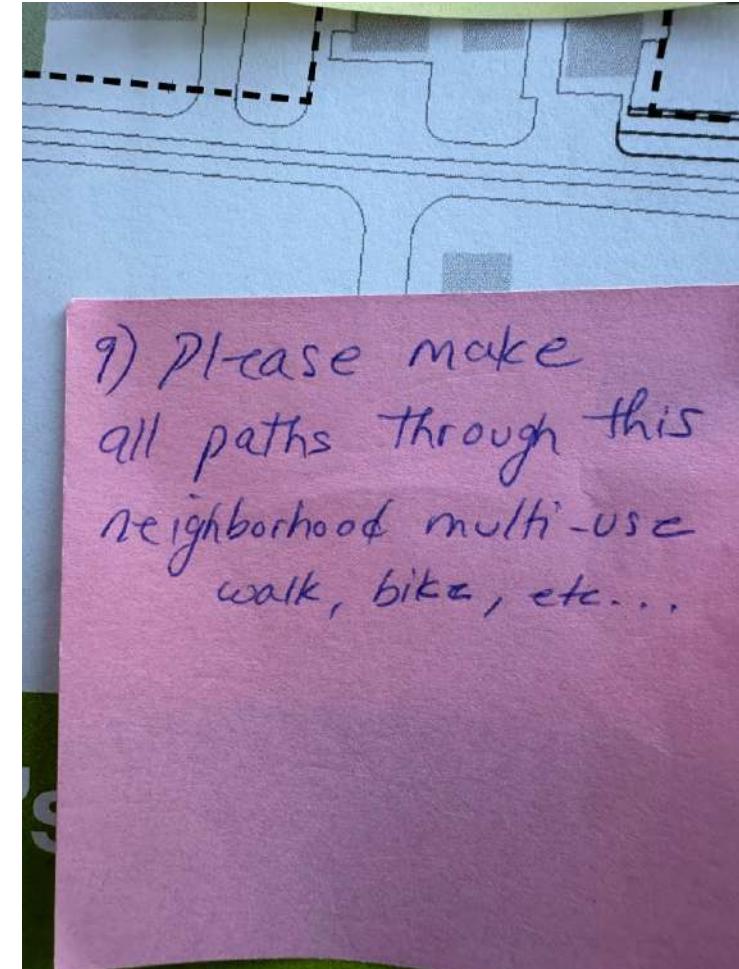 9) Please make
all paths through this
neighborhood multi-use
walk, bike, etc...
's